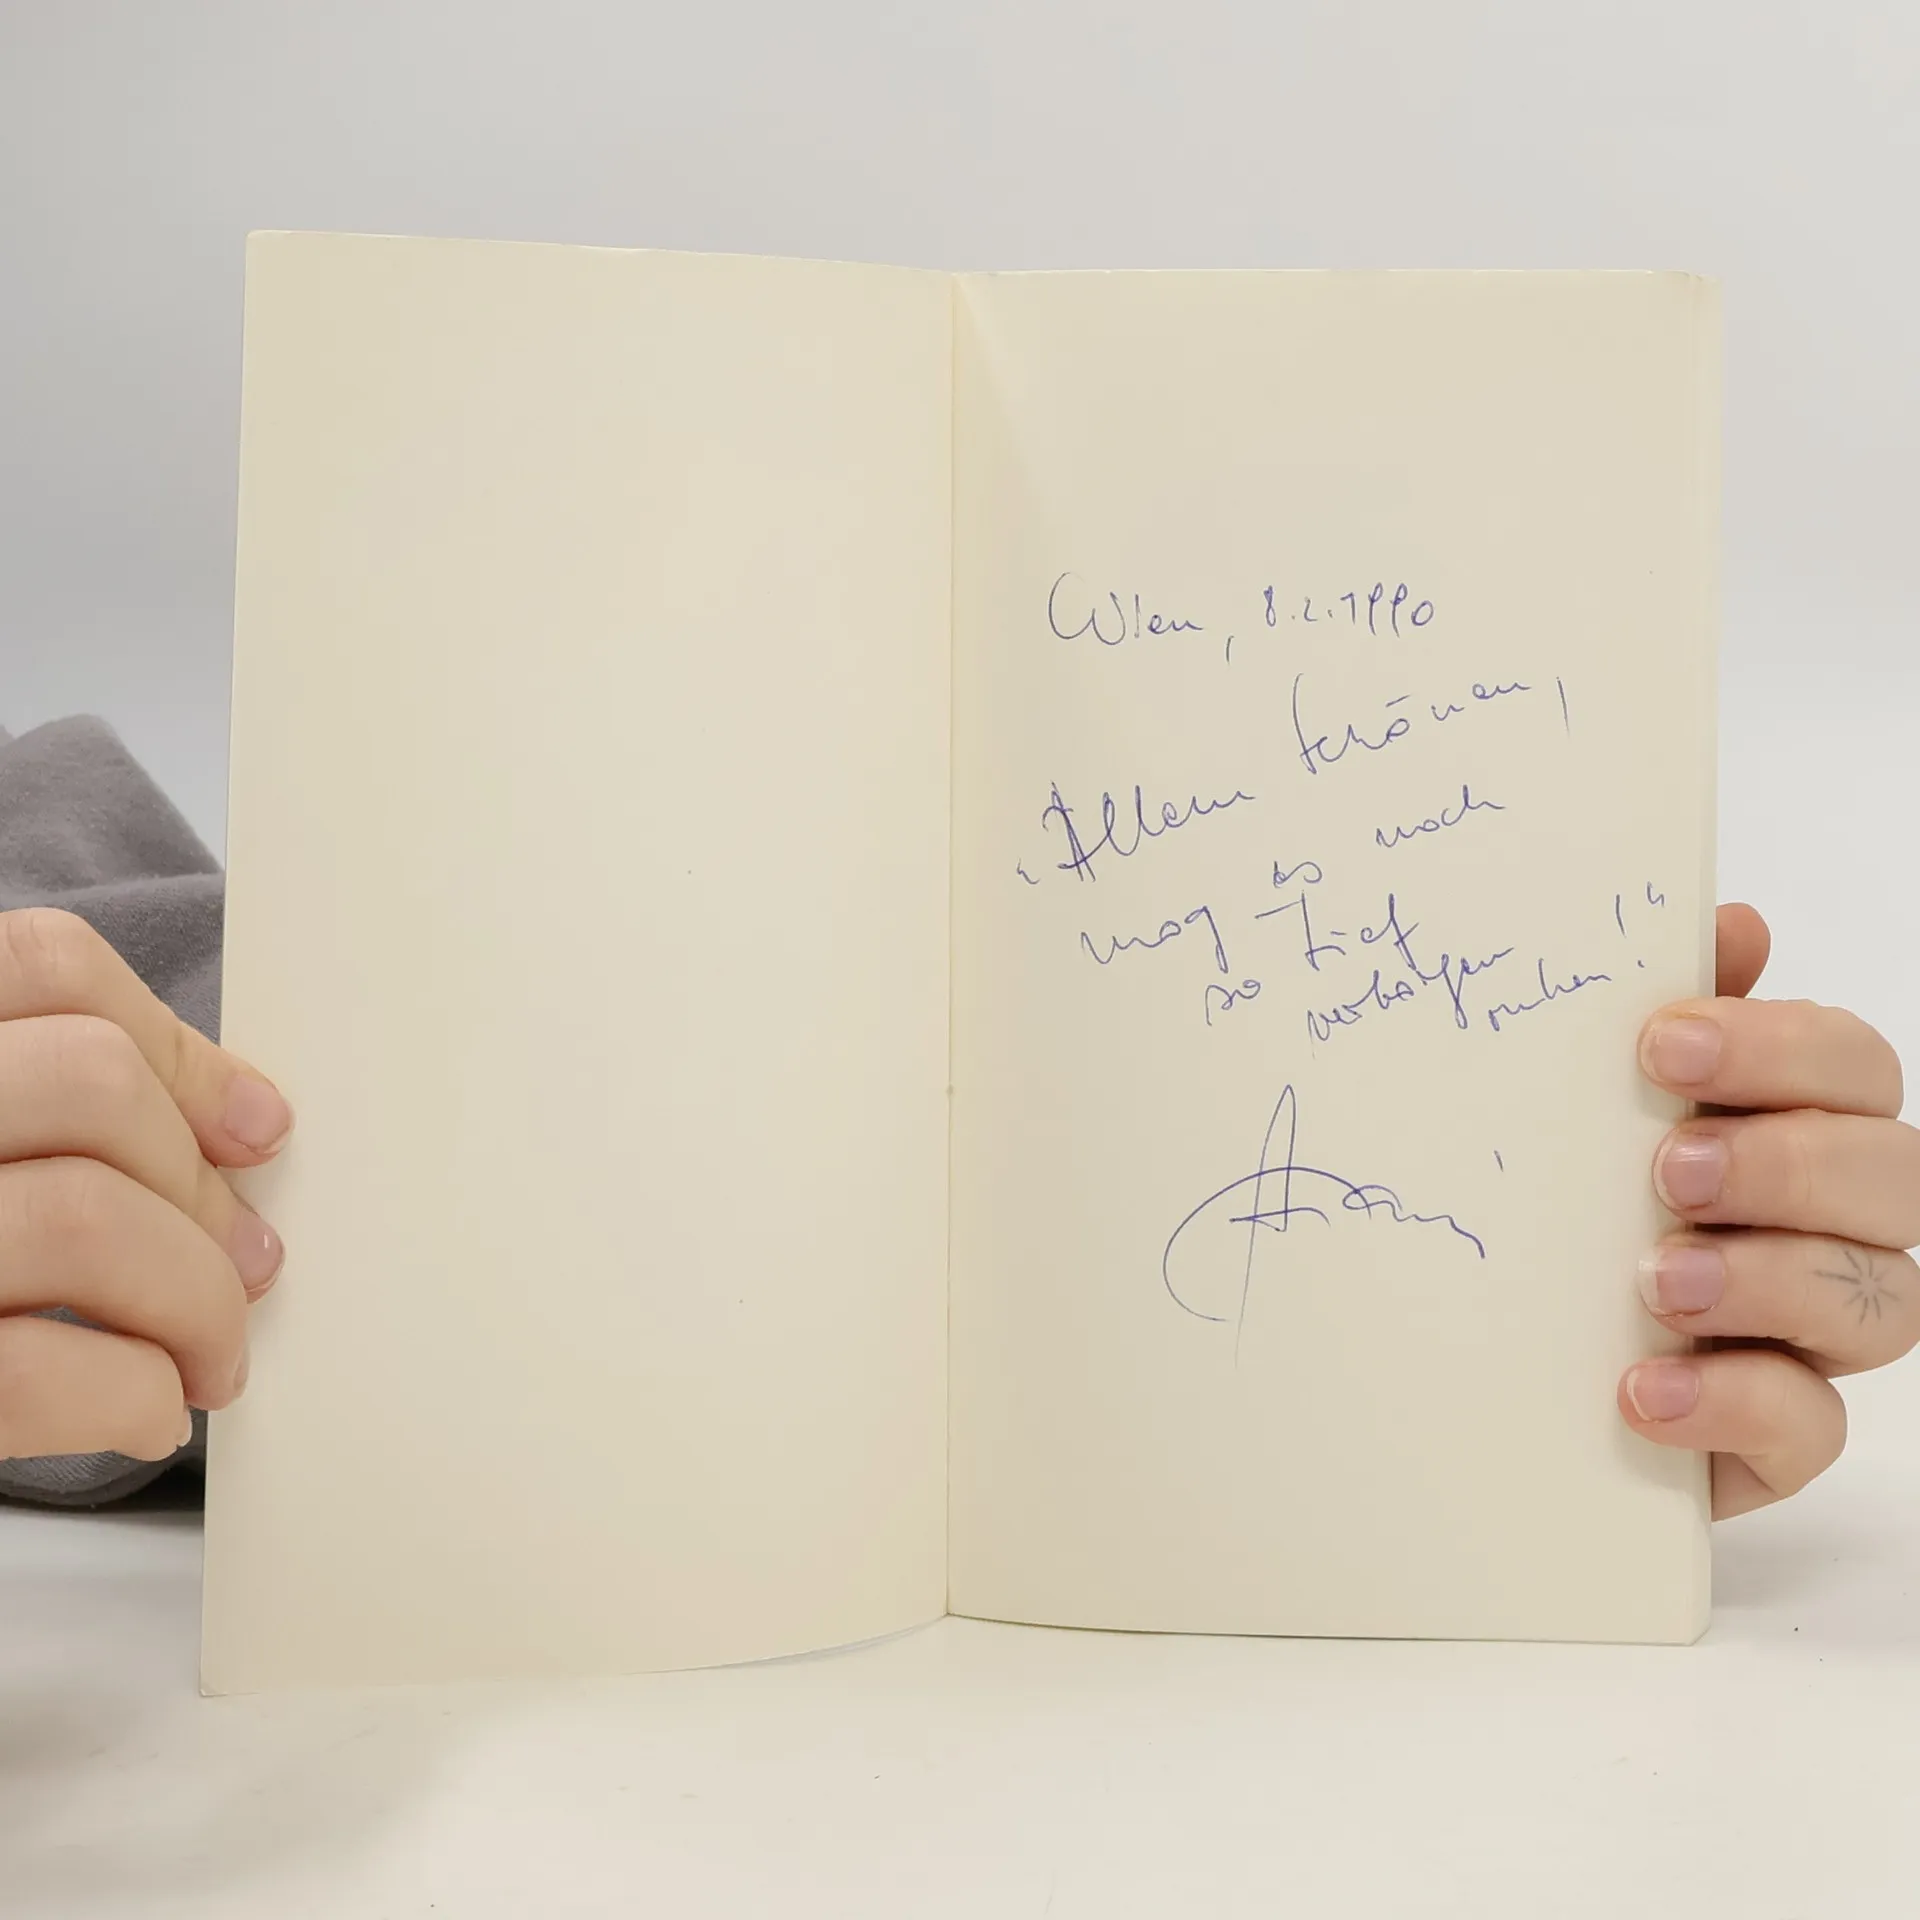 Wien, 8.2.1990
„Allem Schönen,
mag es noch
so tief
verborgen ruhen!“